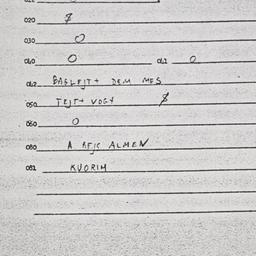 020 8
030 0
040 0 041 0
042 BAGLEJT+ DEM MES
050 TEJT+ VOGT 8
060 0
080 A REJC ALMEN
081 KVORIM